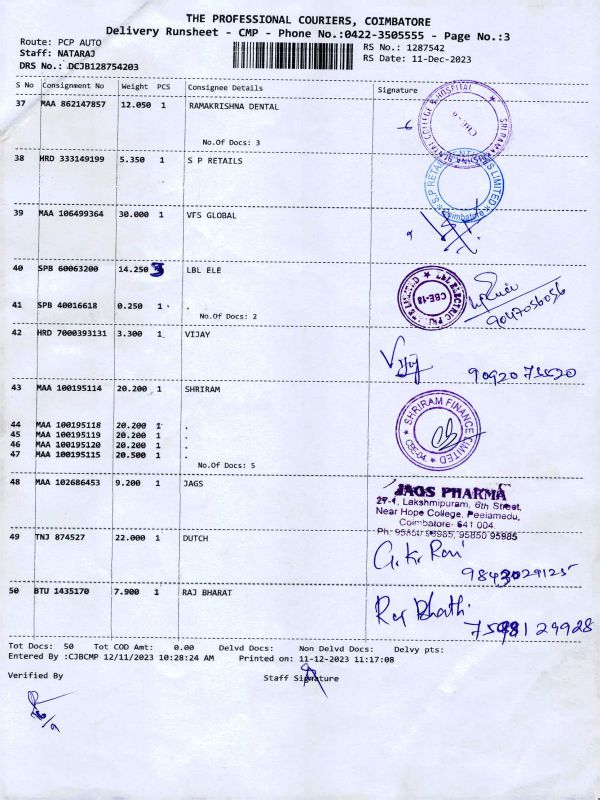 THE PROFESSIONAL COURIERS, COIMBATORE
Delivery Runsheet - CMP - Phone No.:0422-3505555 - Page No.:3
Route: PCP AUTO
Staff: NATARAJ
DRS No.: DCJB128754203
RS No.: 1287542
RS Date: 11-Dec-2023
S No Consignment No Weight PCS Consignee Details Signature
37 MAA 862147857 12.050 1 RAMAKRISHNA DENTAL
No.Of Docs: 3
38 HRD 333149199 5.350 1 S P RETAILS
39 MAA 106499364 30.000 1 VFS GLOBAL
40 SPB 60063200 14.250 3 LBL ELE
CBE-18
9047056056
41 SPB 40016618 0.250 1 .
No.Of Docs: 2
42 HRD 7000393131 3.300 1 VIJAY
43 MAA 100195114 20.200 1 SHRIRAM
SHRIRAM FINANCE LIMITED
CBE-04.
44 MAA 100195118 20.200 1 .
45 MAA 100195119 20.200 1 .
46 MAA 100195120 20.200 1 .
47 MAA 100195115 20.500 1 .
No.Of Docs: 5
48 MAA 102686453 9.200 1 JAGS
JAGS PHARMA
27-1, Lakshmipuram, 6th Street,
Near Hope College, Peelamedu,
Coimbatore- 641 004.
Ph: 95850 98985, 95850 95985
49 TNJ 874527 22.000 1 DUTCH
G.K. Ravi
50 BTU 1435170 7.900 1 RAJ BHARAT
Raj Bharthi
Tot Docs: 50 Tot COD Amt: 0.00 Delvd Docs: Non Delvd Docs: Delvy pts:
Entered By :CJBCMP 12/11/2023 10:28:24 AM Printed on: 11-12-2023 11:17:08
Verified By
Staff Signature